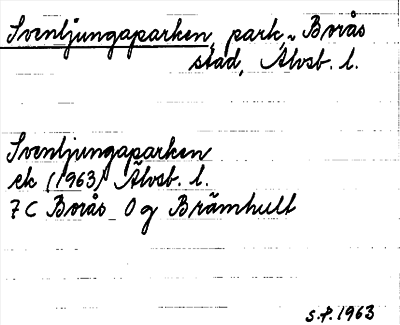 Svenljungaparken, park, Borås
stad, Älvsb. l.
Svenljungaparken
ek (1963) Älvsb. l.
7 C Borås O g Brämhult
s. f. 1963